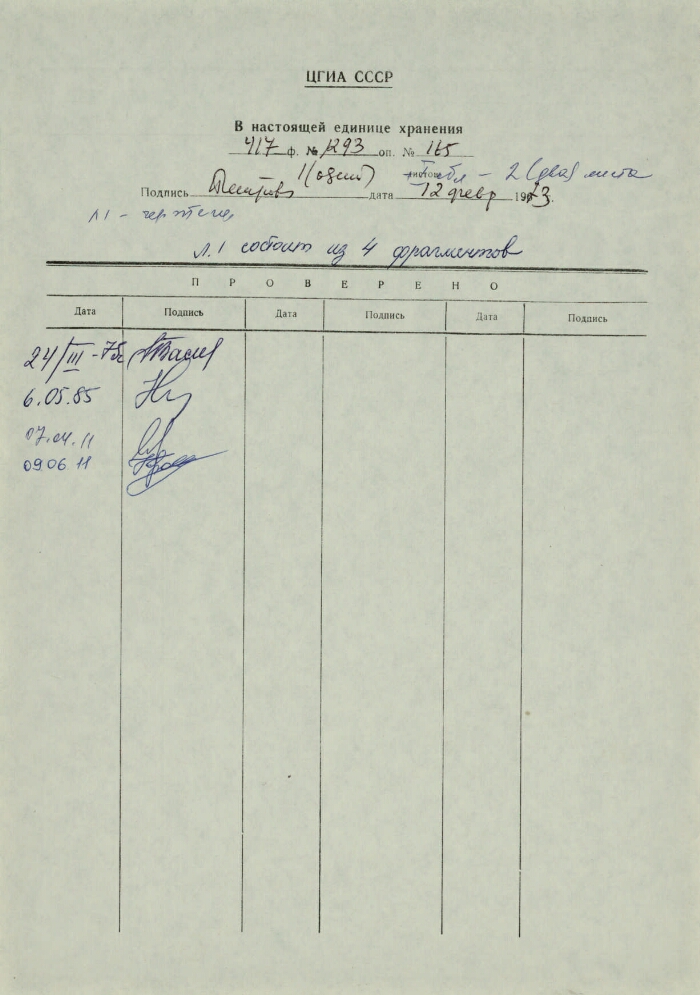 ЦГИА СССР
В настоящей единице хранения
417 ф. № 1293 оп. № 165
1 (один) листов 2 (два) листа
Подпись дата 12 февр 1973.
л 1 -
л. 1 состоит из 4 фрагментов
ПРОВЕРЕНО
Дата Подпись Дата Подпись Дата Подпись
24/III-75
6.05.85
07.04.11
09 06 11